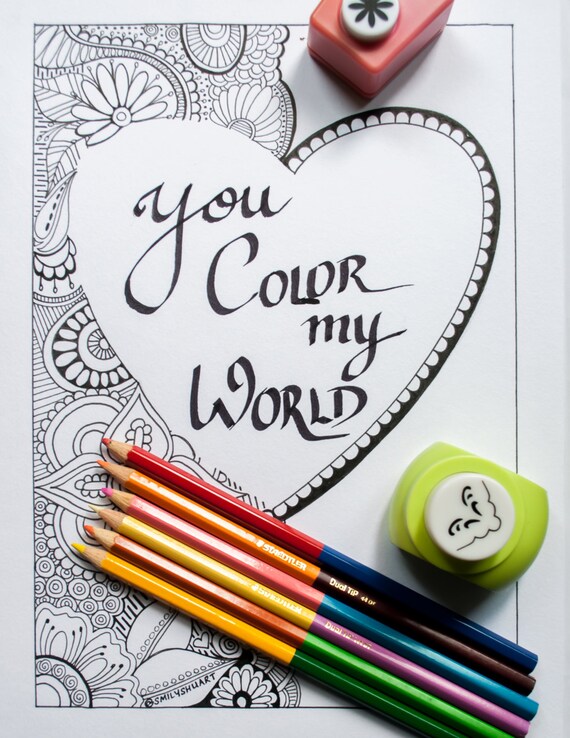 you
COLOR
my
WORLD
STAEDTLER
STAEDTLER
DUAL TIP
DUAL TIP
©SMILYSHUART